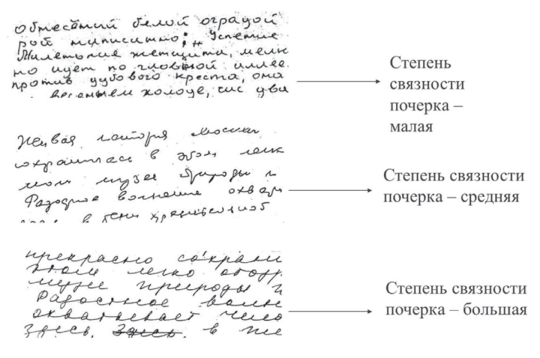 обнесённый белой оградой
рой написано: „Успение
Милетькие женщина, мелк
но идет по главной аллее.
против дубового креста, она
весеннем холоде, сис два
Степень
связности
почерка –
малая
Живая история Москвы
сохранилась в этом легк
музея природы и
Радостное волнение охват
в
Степень связности
почерка – средняя
прекрасно сохрани
этом легко обозр
музее природы и
Радостное волн
охватывает чело
здесь, здесь в же
Степень связности
почерка – большая